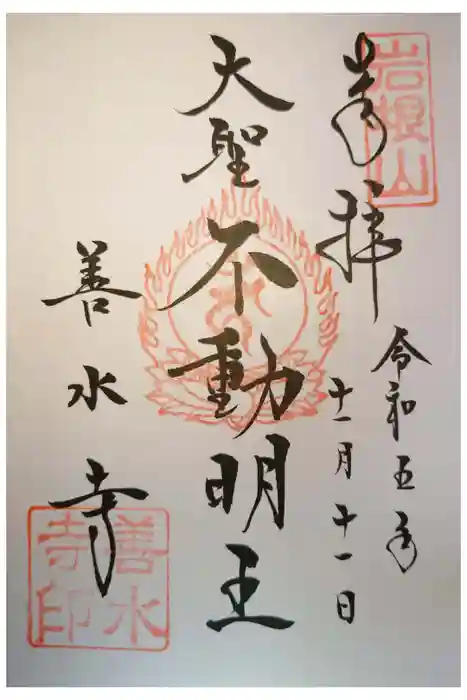 奉拝
岩根山
令和五年
十一月十一日
大聖不動明王
善水寺
善水
寺印